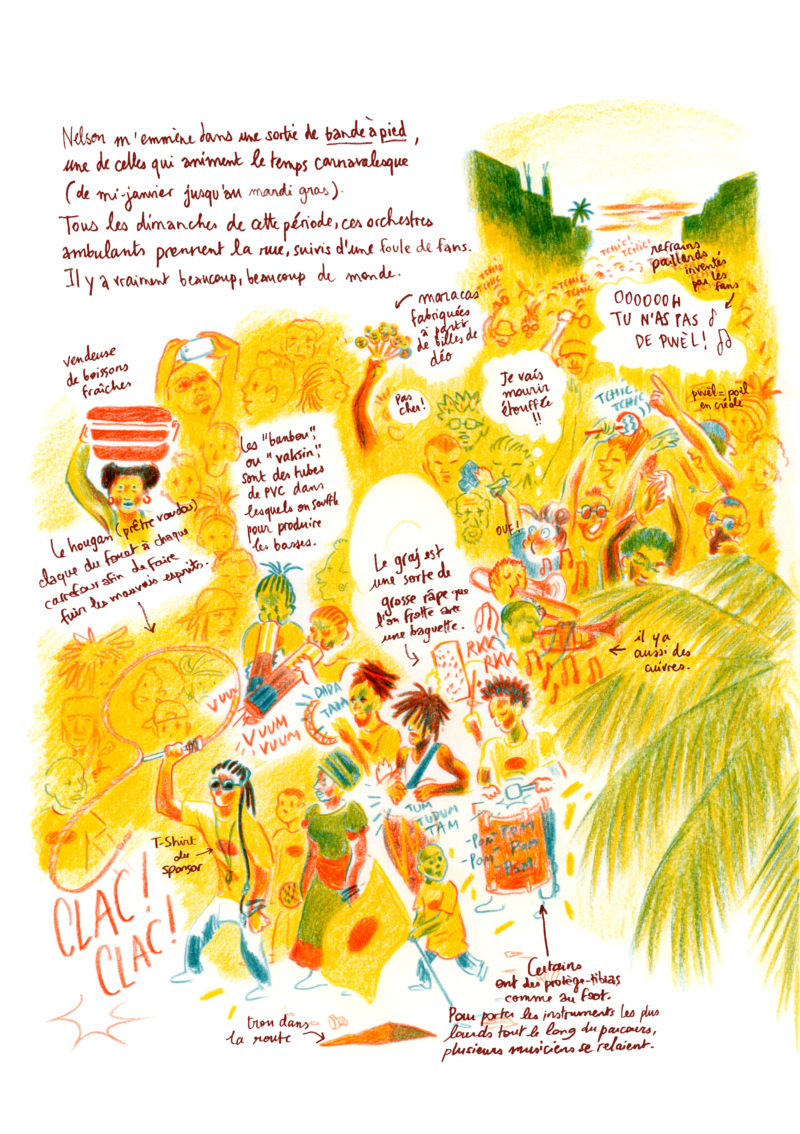 Nelson m'emmène dans une sortie de bande à pied,
une de celles qui animent le temps carnavalesque
(de mi-janvier jusqu'au mardi gras).
Tous les dimanches de cette période, ces orchestres
ambulants prennent la rue, suivis d'une foule de fans.
Il y a vraiment beaucoup, beaucoup de monde.
TCHIC!
TCHIC!
refrains
paillards
inventés
par les
fans
OOOOOOH
TU N'AS PAS
DE PWÈL!
TCHIC
TCHIC
TCHIC
TCHIC
maracas
fabriquées
à partir
de billes de
déo
vendeuse
de boissons
fraîches
Pas
cher!
Je vais
mourir
étouffée
!!
TCHIC
TCHIC
pwèl = poil
en créole
Les "banbou",
ou "vaksin",
sont des tubes
de PVC dans
lesquels on souffle
pour produire
les basses.
Le hougan (prêtre vaudou)
claque du fouet à chaque
carrefour afin de faire
fuir les mauvais esprits.
OUF!
Le graj est
une sorte de
grosse râpe que
l'on frotte avec
une baguette.
il y a
aussi des
cuivres.
RKK
RKK
VUUM
VUUM
VUUM
DADA
TAM
TUM
TUDUM
TAM
-POM-POM
-POM- POM
-POM
T-Shirt
du
sponsor
CLAC!
CLAC!
trou dans
la route
Certains
ont des protège-tibias
comme au foot.
Pour porter les instruments les plus
lourds tout le long du parcours,
plusieurs musiciens se relaient.